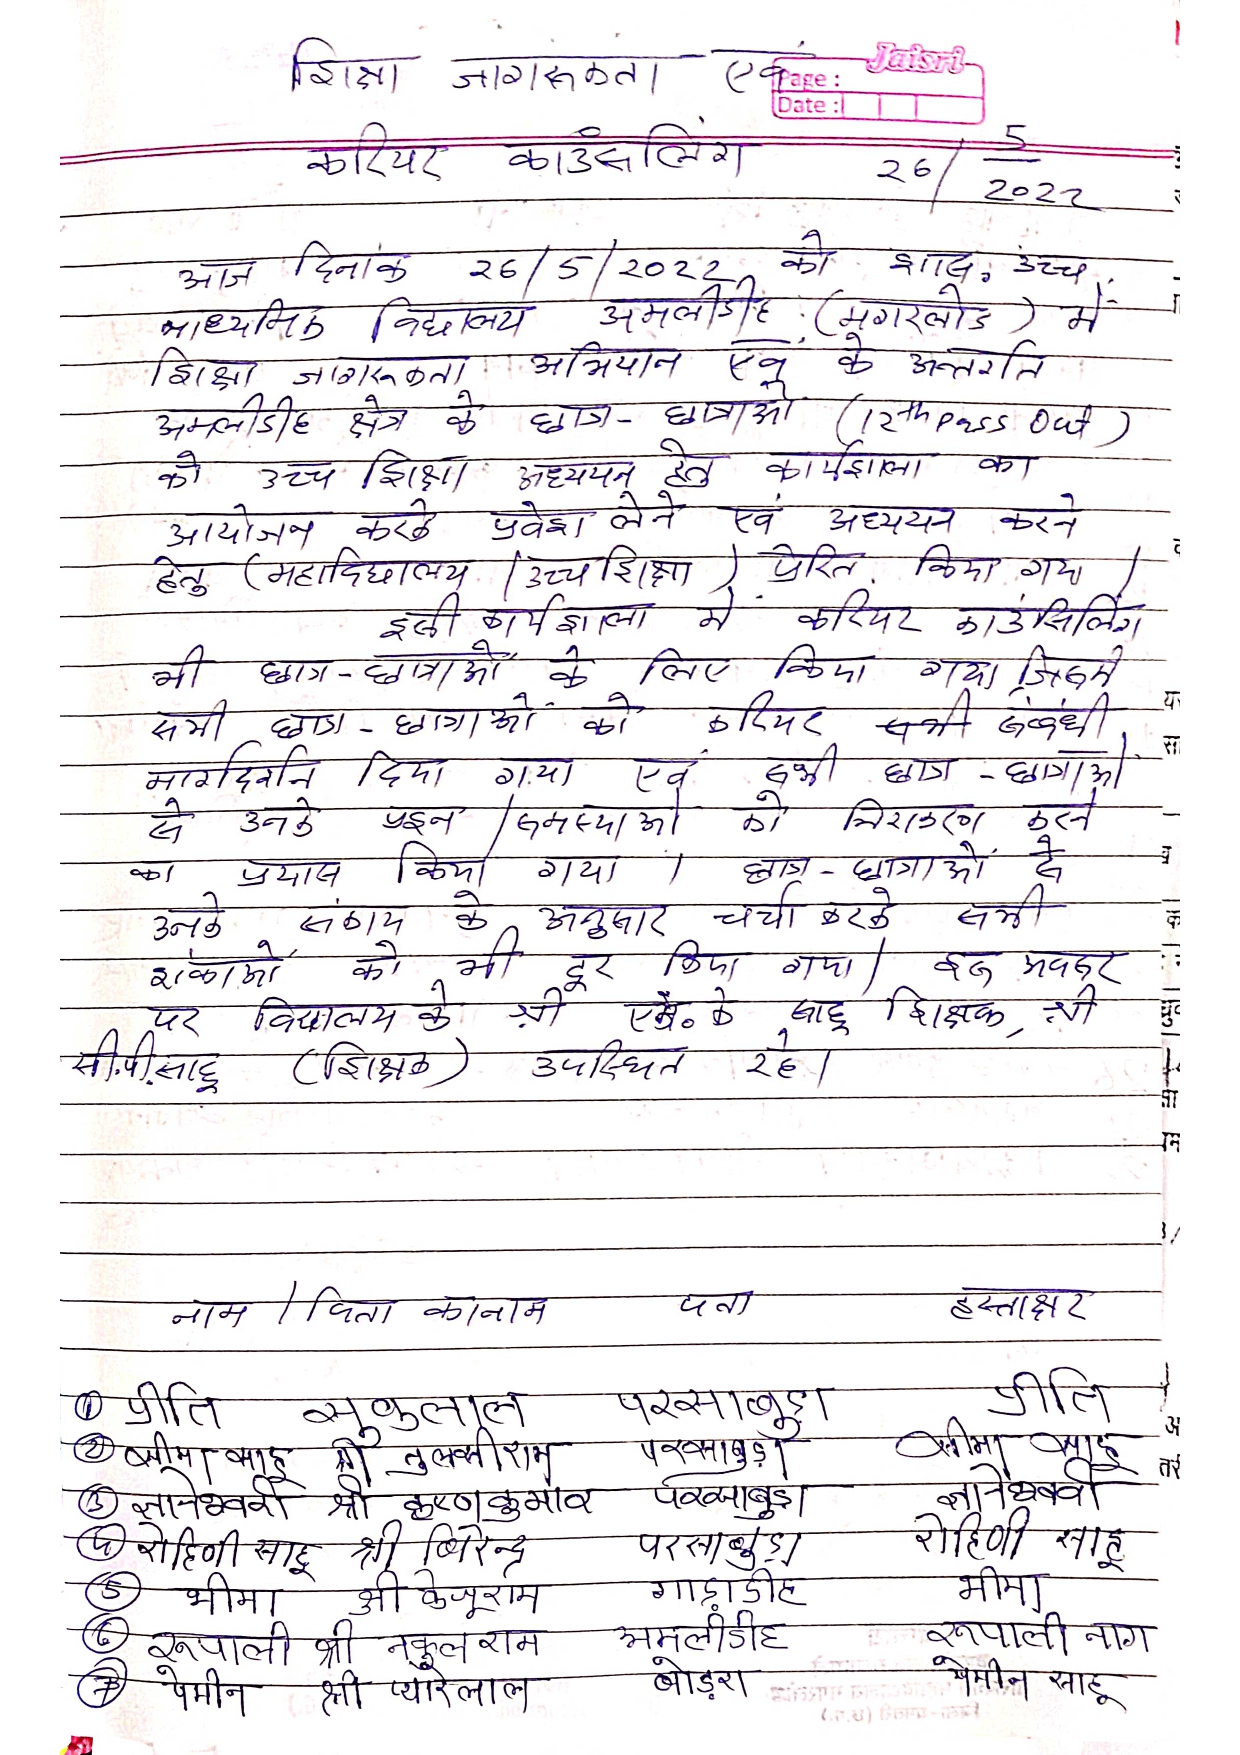 शिक्षा जागरूकता एवं
Jaisri
Page :
Date :
करियर काउंसलिंग 26/5/2022
आज दिनांक 26/5/2022 को शास. उच्च.
माध्यमिक विद्यालय अमलीडीह (मगरलोड) में
शिक्षा जागरूकता अभियान एवं के अन्तर्गत
अमलीडीह क्षेत्र के छात्र-छात्राओं (12th Pass Out)
को उच्च शिक्षा अध्ययन हेतु कार्यशाला का
आयोजन करके प्रवेश लेने एवं अध्ययन करने
हेतु (महाविद्यालय / उच्च शिक्षा) प्रेरित किया गया।
इसी कार्यशाला में करियर काउंसिलिंग
भी छात्र-छात्राओं के लिए किया गया जिसमें
सभी छात्र-छात्राओं को करियर सभी संबंधी
मार्गदर्शन दिया गया एवं सभी छात्र-छात्राओं
से उनके प्रश्न /समस्याओं को निराकरण करने
का प्रयास किया गया । छात्र-छात्राओं से
उनके संकाय के अनुसार चर्चा करके सभी
शंकाओं को भी दूर किया गया। इस अवसर
पर विद्यालय के श्री एम.के साहू शिक्षक, श्री
सी.पी.साहू (शिक्षक) उपस्थित रहे।
नाम / पिता का नाम पता हस्ताक्षर
① प्रीति सुकुलाल परसाबुड़ा प्रीति
② सीमा साहू श्री तुलसीराम परसाबुड़ा सीमा साहू
③ ज्ञानेश्वरी श्री कृष्णकुमार परसाबुड़ा ज्ञानेश्वरी
④ रोहिणी साहू श्री बिरेन्द्र परसाबुड़ा रोहिणी साहू
⑤ भीमा श्री केजूराम गाड़ाडीह भीमा
⑥ रूपाली श्री नकुल राम अमलीडीह रूपाली नाग
⑦ पेमीन श्री प्यारेलाल बोड़रा पेमीन साहू